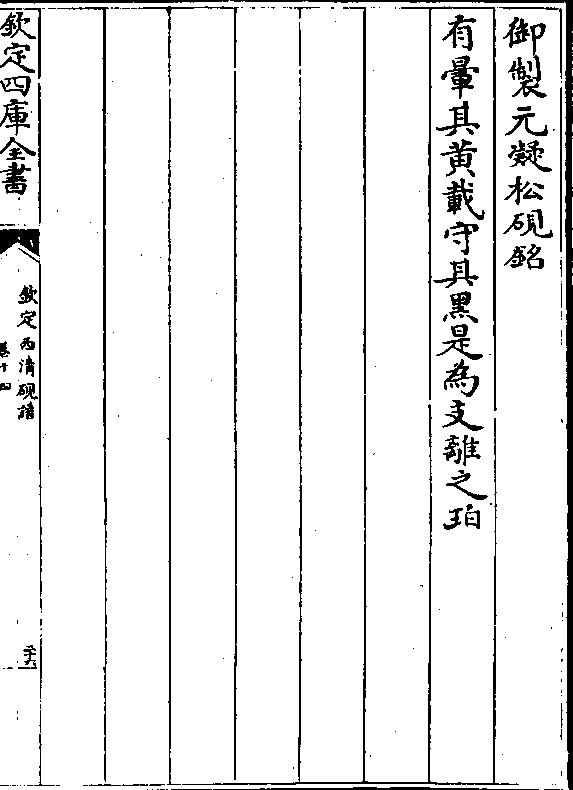 御製元凝松硯銘
有暈其黄載守其黑是為支離之珀
欽定四庫全書
欽定西清硯譜
卷十四
二十六